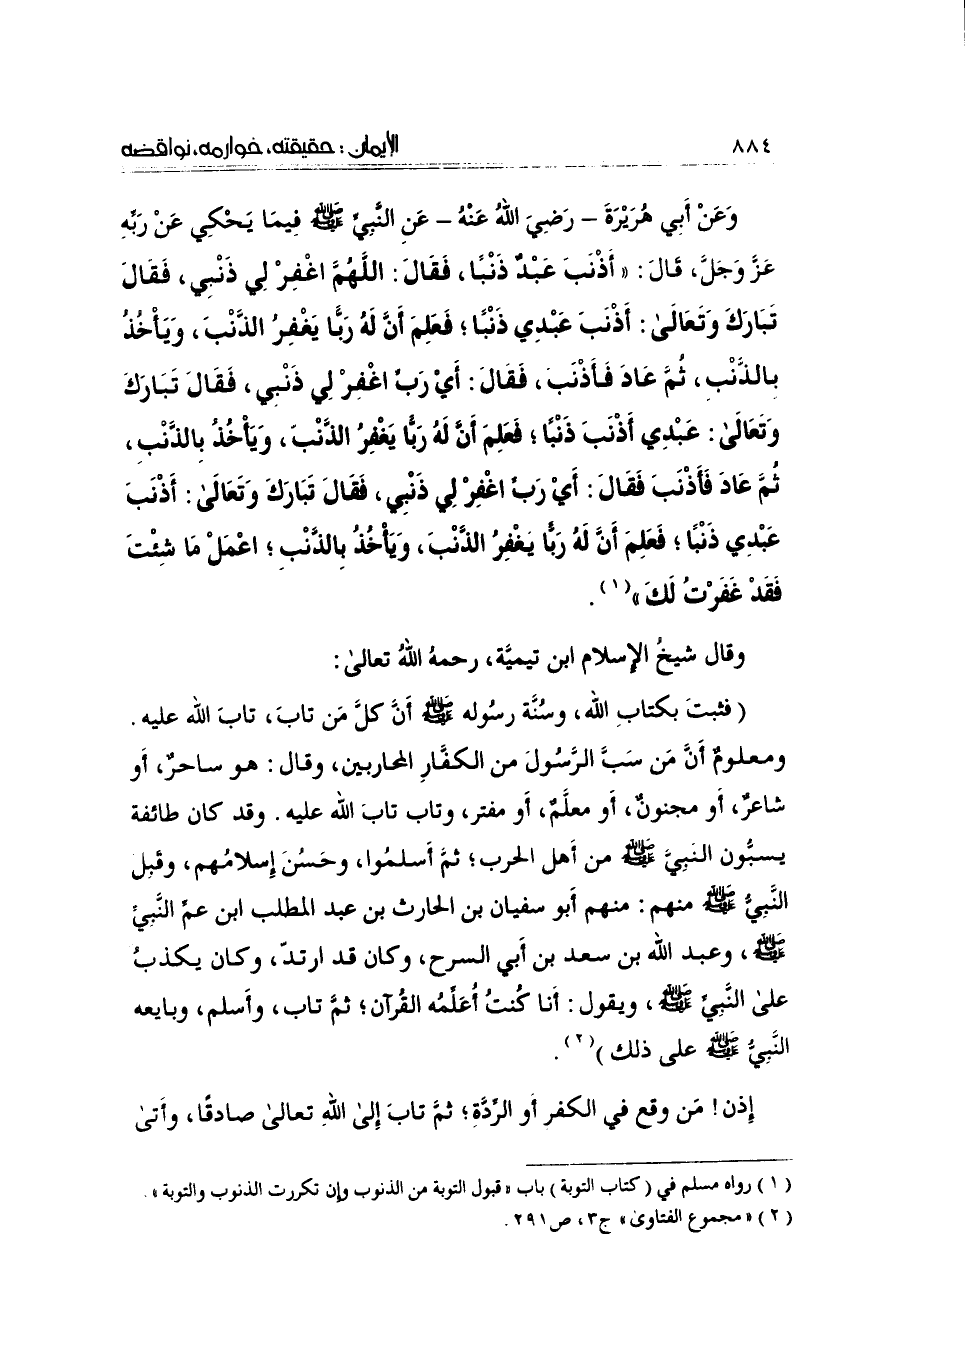 ٨٨٤
الأيمان : حقيقته، خوارمه، نواقضه
وَعَنْ أَبِي هُرَيْرَةَ – رَضِيَ اللهُ عَنْهُ – عَنِ النَّبِيِّ ﷺ فِيمَا يَحْكِي عَنْ رَبِّهِ
عَزَّ وَجَلَّ، قَالَ : « أَذْنَبَ عَبْدٌ ذَنْبًا ، فَقَالَ : اللَّهُمَّ اغْفِرْ لِي ذَنْبِي ، فَقَالَ
تَبَارَكَ وَتَعَالَىٰ : أَذْنَبَ عَبْدِي ذَنْبًا ؛ فَعَلِمَ أَنَّ لَهُ رَبًّا يَغْفِرُ الذَّنْبَ ، وَيَأْخُذُ
بِالذَّنْبِ ، ثُمَّ عَادَ فَأَذْنَبَ ، فَقَالَ : أَيْ رَبِّ اغْفِرْ لِي ذَنْبِي ، فَقَالَ تَبَارَكَ
وَتَعَالَىٰ : عَبْدِي أَذْنَبَ ذَنْبًا ؛ فَعَلِمَ أَنَّ لَهُ رَبًّا يَغْفِرُ الذَّنْبَ ، وَيَأْخُذُ بِالذَّنْبِ ،
ثُمَّ عَادَ فَأَذْنَبَ فَقَالَ : أَيْ رَبِّ اغْفِرْ لِي ذَنْبِي ، فَقَالَ تَبَارَكَ وَتَعَالَىٰ : أَذْنَبَ
عَبْدِي ذَنْبًا ؛ فَعَلِمَ أَنَّ لَهُ رَبًّا يَغْفِرُ الذَّنْبَ ، وَيَأْخُذُ بِالذَّنْبِ ؛ اعْمَلْ مَا شِئْتَ
فَقَدْ غَفَرْتُ لَكَ »(١) .
وقال شيخُ الإسلام ابن تيميَّة، رحمهُ اللهُ تعالىٰ :
( فثبتَ بكتاب الله، وسُنَّة رسُوله ﷺ أَنَّ كلَّ مَن تابَ، تابَ الله عليه .
ومعلومٌ أَنَّ مَن سَبَّ الرَّسُولَ من الكفَّارِ المحاربين، وقال : هو ساحرٌ، أَو
شاعرٌ، أَو مجنونٌ، أَو معلَّمٌ، أَو مفتر، وتاب تابَ الله عليه . وقد كان طائفة
يسبُّون النبيَّ ﷺ من أهل الحرب؛ ثمَّ أَسلمُوا، وحَسُنَ إِسلامُهم، وقَبِل
النَّبِيُّ ﷺ منهم : منهم أَبو سفيان بن الحارث بن عبد المطلب ابن عمِّ النَّبِيِّ
ﷺ ، وعبد الله بن سعد بن أَبي السرح، وكان قد ارتدّ، وكان يكذبُ
علىٰ النَّبِيِّ ﷺ ، ويقول : أَنا كُنتُ أُعَلِّمُه القُرآن؛ ثمَّ تاب، وأَسلم، وبايعه
النَّبِيُّ ﷺ على ذلك )(٢) .
إِذن ! مَن وقع في الكفر أَو الرِّدَّةِ؛ ثمَّ تابَ إِلىٰ اللهِ تعالىٰ صادقًا، وأَتىٰ
( ١ ) رواه مسلم في ( كتاب التوبة ) باب « قبول التوبة من الذنوب وإن تكررت الذنوب والتوبة » .
( ٢ ) « مجموع الفتاوىٰ » ج٣ ، ص٢٩١ .